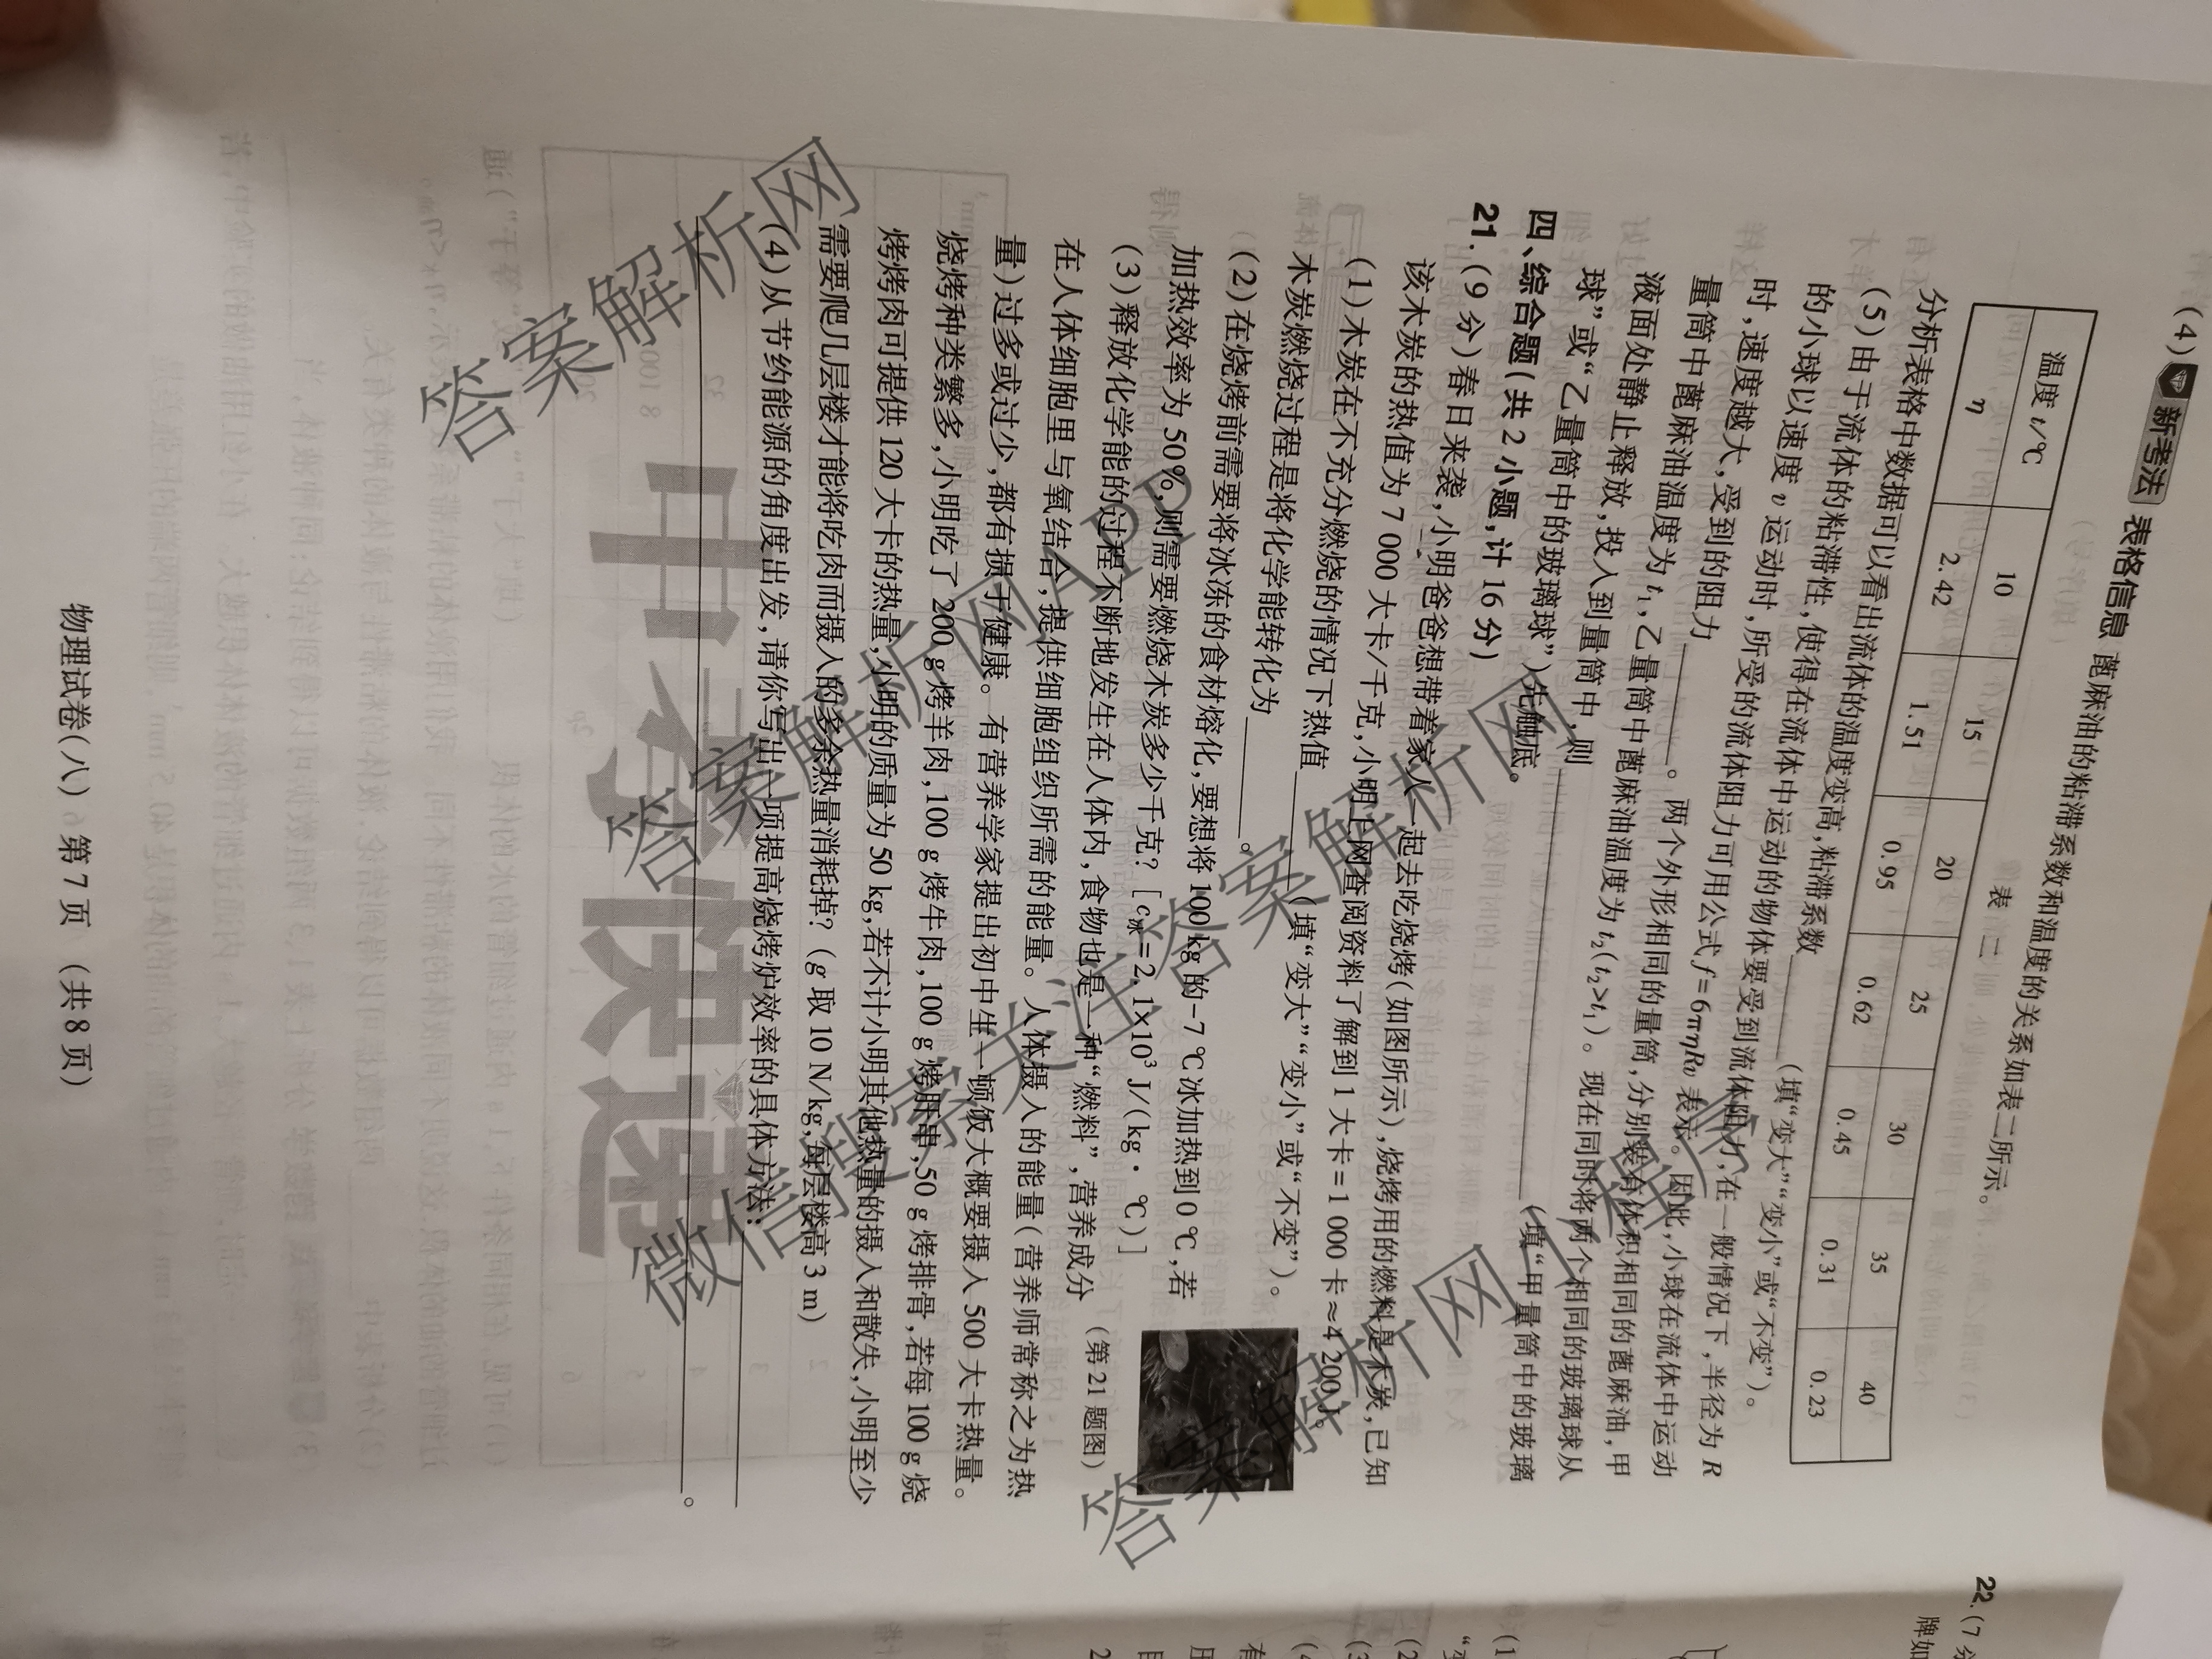 (4) 新考法 表格信息 蓖麻油的粘滞系数和温度的关系如表二所示。
表二
温度 t/℃ 10 15 20 25 30 35 40
η 2.42 1.51 0.95 0.62 0.45 0.31 0.23
分析表格中数据可以看出流体的温度变高,粘滞系数______(填“变大”“变小”或“不变”)。
(5)由于流体的粘滞性,使得在流体中运动的物体要受到流体阻力,在一般情况下,半径为 R
的小球以速度 v 运动时,所受的流体阻力可用公式 f=6πηRv 表示。因此,小球在流体中运动
时,速度越大,受到的阻力______。两个外形相同的量筒,分别装有体积相同的蓖麻油,甲
量筒中蓖麻油温度为 t₁,乙量筒中蓖麻油温度为 t₂(t₂>t₁)。现在同时将两个相同的玻璃球从
液面处静止释放,投入到量筒中,则______(填“甲量筒中的玻璃
球”或“乙量筒中的玻璃球”)先触底。
四、综合题(共 2 小题,计 16 分)
21.(9 分)春日来袭,小明爸爸想带着家人一起去吃烧烤(如图所示),烧烤用的燃料是木炭,已知
该木炭的热值为 7 000 大卡/千克,小明上网查阅资料了解到 1 大卡=1 000 卡≈4 200 J。
(1)木炭在不充分燃烧的情况下热值______(填“变大”“变小”或“不变”)。
木炭燃烧过程是将化学能转化为______。
(2)在烧烤前需要将冰冻的食材熔化,要想将 100 kg 的-7 ℃冰加热到 0 ℃,若
加热效率为 50%,则需要燃烧木炭多少千克? [c冰=2.1×10³ J/(kg·℃)]
(3)释放化学能的过程不断地发生在人体内,食物也是一种“燃料”,营养成分
(第 21 题图)
在人体细胞里与氧结合,提供细胞组织所需的能量。人体摄入的能量(营养师常称之为热
量)过多或过少,都有损于健康。有营养学家提出初中生一顿饭大概要摄入 500 大卡热量。
烧烤种类繁多,小明吃了 200 g 烤羊肉,100 g 烤牛肉,100 g 烤肝串,50 g 烤排骨,若每 100 g 烧
烤烤肉可提供 120 大卡的热量,小明的质量为 50 kg,若不计小明其他热量的摄入和散失,小明至少
需要爬几层楼才能将吃肉而摄入的多余热量消耗掉?(g 取 10 N/kg,每层楼高 3 m)
(4)从节约能源的角度出发,请你写出一项提高烧烤炉效率的具体方法:______
______。
中考快递
物理试卷(八) 第 7 页 (共 8 页)
22.(7 分
牌如
答案解析网
答案解析网APP
答案解析网
微信搜索关注答案解析网
答案解析网小程序